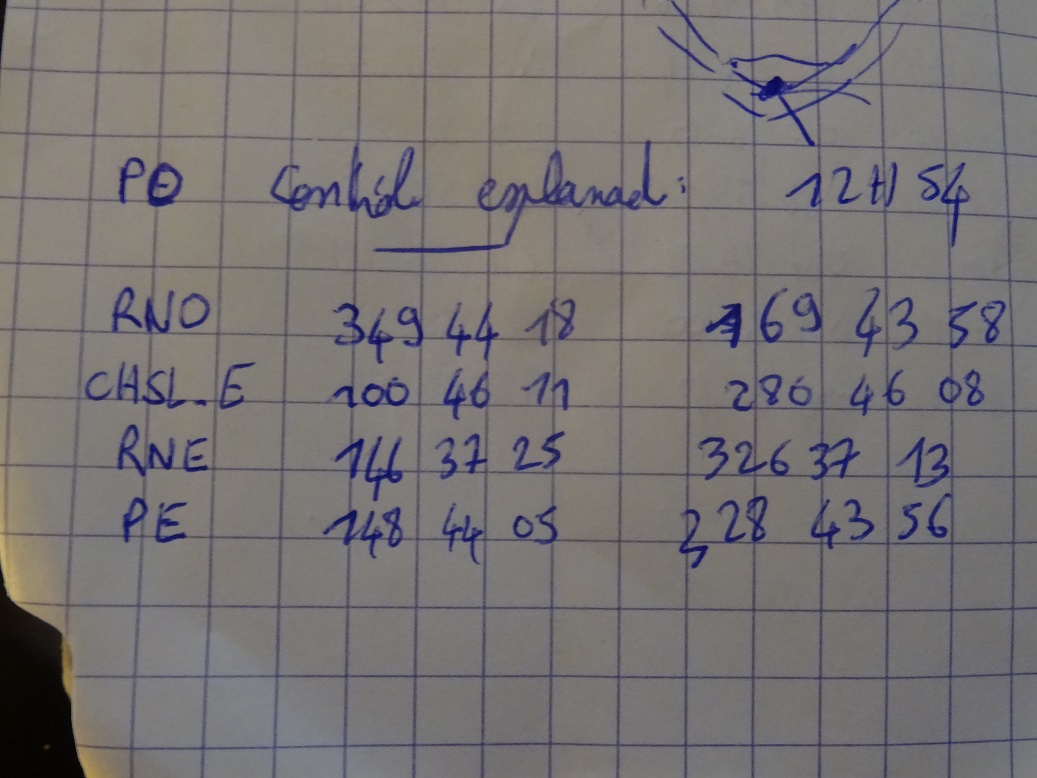 PO Control esplanad: 12H54
RNO 349 44 18 169 43 58
CHSL_E 100 46 11 280 46 08
RNE 146 37 25 326 37 13
PE 148 44 05 328 43 56